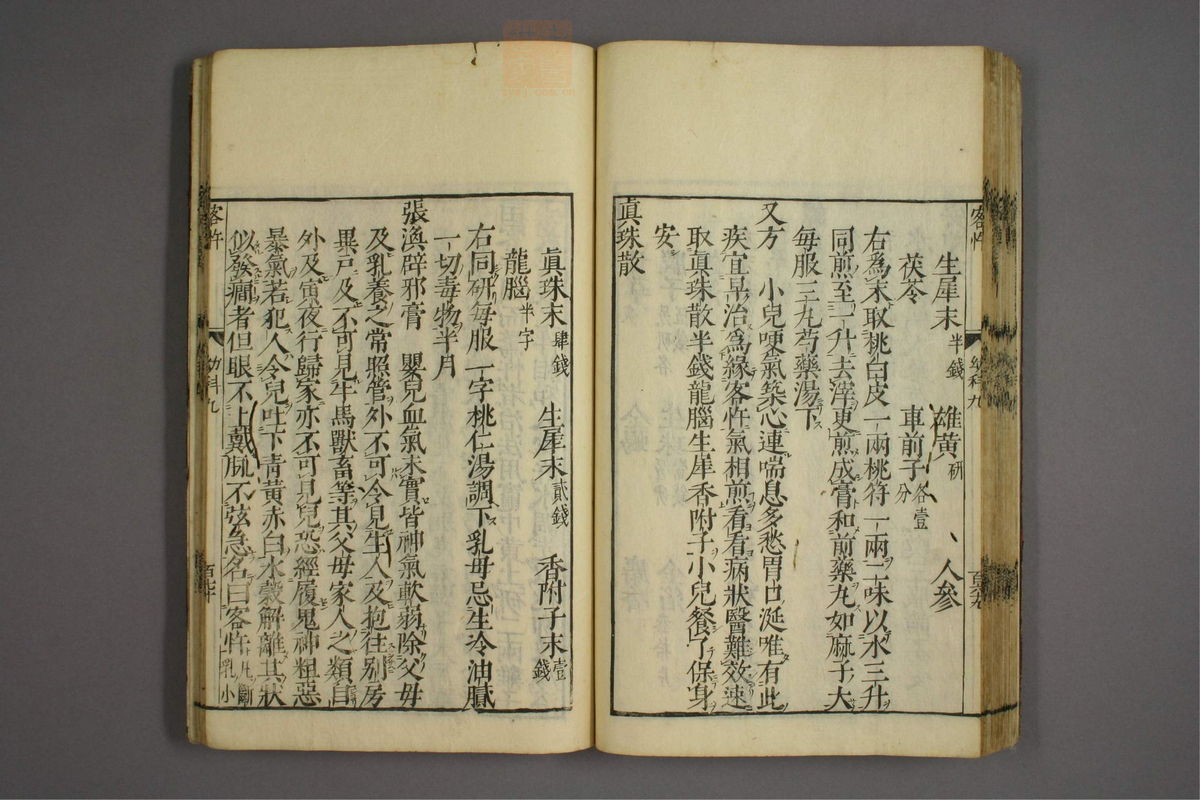 客忤
幼科九
百六十九
生犀末半錢　雄黃研　人參
茯苓　車前子各壹分
右爲末取桃白皮一兩桃符一兩二味以水三升
同煎至一升去滓更煎成膏和前藥丸如麻子大
每服三丸芍藥湯下
又方　小兒哽氣築心連喘息多愁胃口涎唯有此
疾宜早治爲緣客忤氣相煎看看病狀醫難效速
取眞珠散半錢龍腦生犀香附子小兒餐了保身
安
眞珠散
眞珠末肆錢　生犀末貳錢　香附子末壹錢
龍腦半字
右同研每服一字桃仁湯調下乳母忌生冷油膩
一切毒物半月
張渙辟邪膏　嬰兒血氣未實皆神氣軟弱除父母
及乳養之常照管外不可令見生人及抱往別房
異戶及不可見牛馬獸畜等其父母家人之類自
外及寅夜行歸家亦不可見兒恐經履鬼神粗惡
暴氣若犯人令兒吐下靑黃赤白水穀解離其狀
似發癎者但眼不上戴脈不弦急名曰客忤
客忤
幼科九
百七十